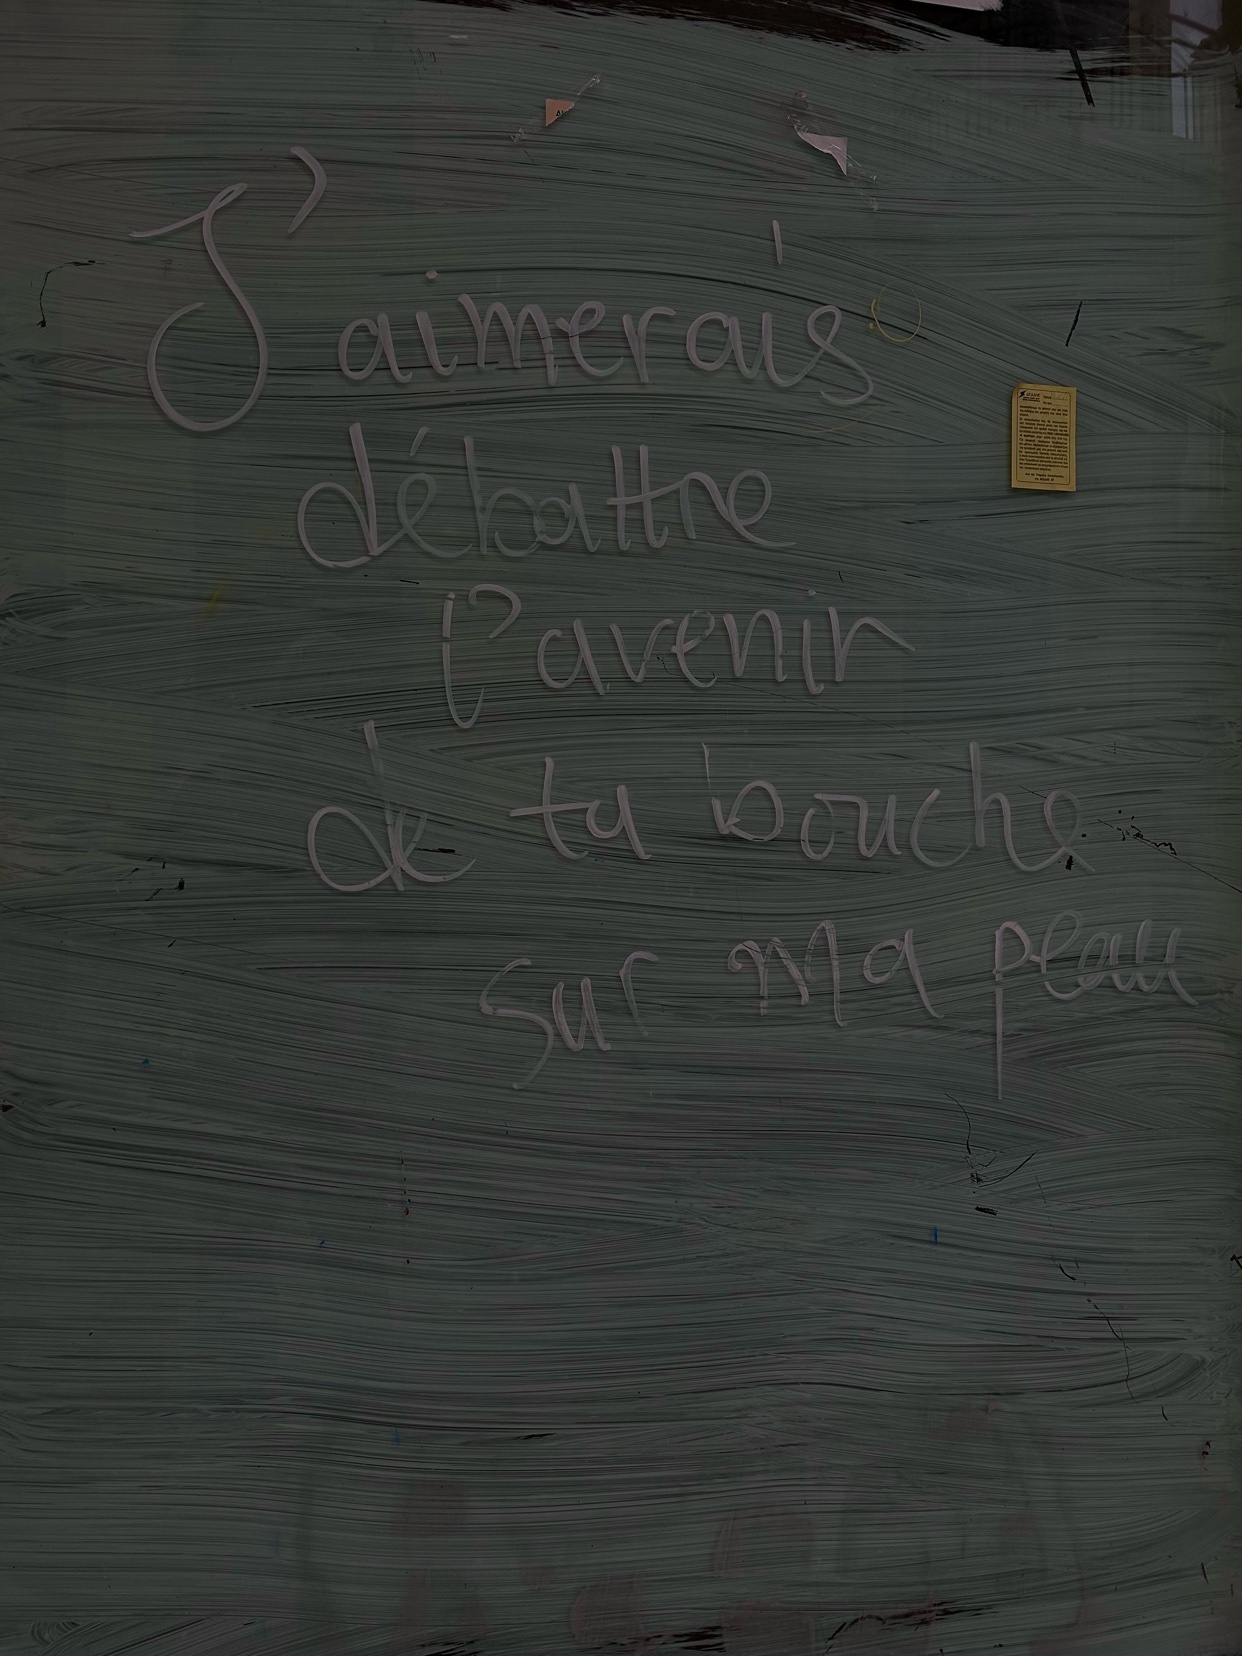 J'aimerais
débattre
l'avenir
de ta bouche
sur ma peau